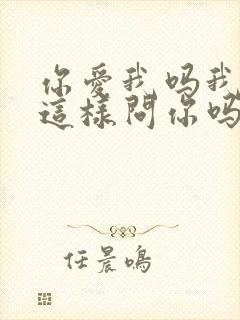 你愛我嗎我
這樣問你嗎
任晨鳴